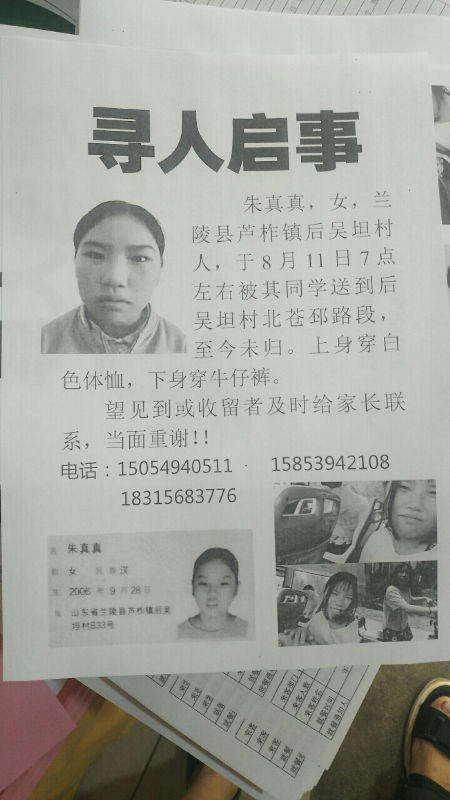 寻人启事
朱真真，女，兰
陵县芦柞镇后吴坦村
人，于8月11日7点
左右被其同学送到后
吴坦村北苍邳路段，
至今未归。上身穿白
色体恤，下身穿牛仔裤。
望见到或收留者及时给家长联
系，当面重谢!!
电话：15054940511 · 15853942108
18315683776
名 朱真真
女 民族 汉
2006 年 9 月 28 日
山东省兰陵县芦柞镇后吴
坦村833号